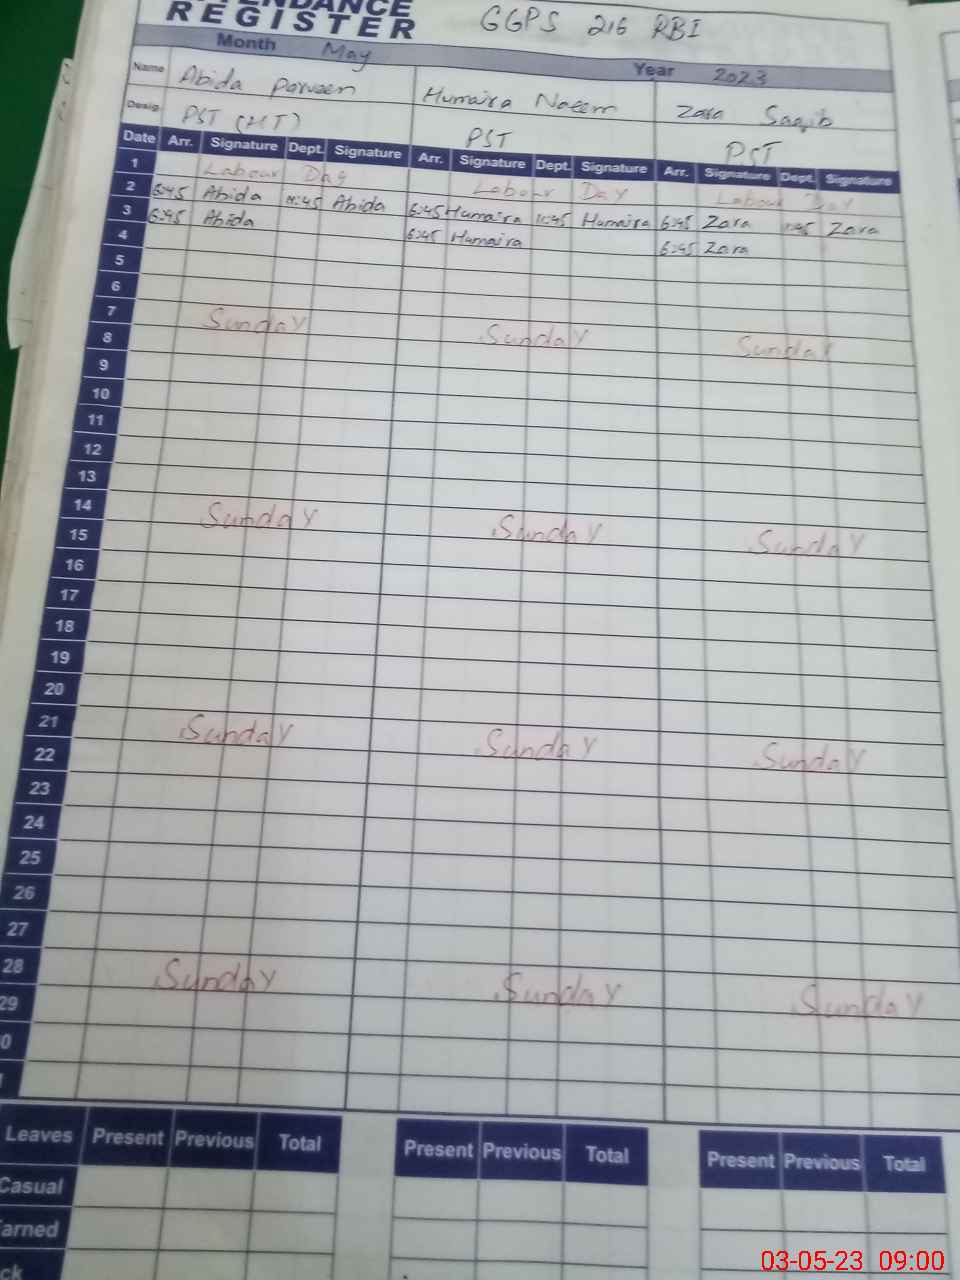 ATTENDANCE
REGISTER GGPS 216 RBI
Month May Year 2023
Name Abida Parveen Humaira Naeem Zara Saqib
Desig. PST (HT) PST PST
Date Arr. Signature Dept. Signature Arr. Signature Dept. Signature Arr. Signature Dept. Signature
1 Labour Day Labour Day Labour Day
2 6:45 Abida 11:45 Abida 6:45 Humaira 11:45 Humaira 6:45 Zara 11:45 Zara
3 6:45 Abida 6:45 Humaira 6:45 Zara
4
5
6
7 Sunday Sunday Sunday
8
9
10
11
12
13
14 Sunday Sunday Sunday
15
16
17
18
19
20
21 Sunday Sunday Sunday
22
23
24
25
26
27
28 Sunday Sunday Sunday
29
0
Leaves Present Previous Total Present Previous Total Present Previous Total
Casual
Earned
ck
03-05-23 09:00